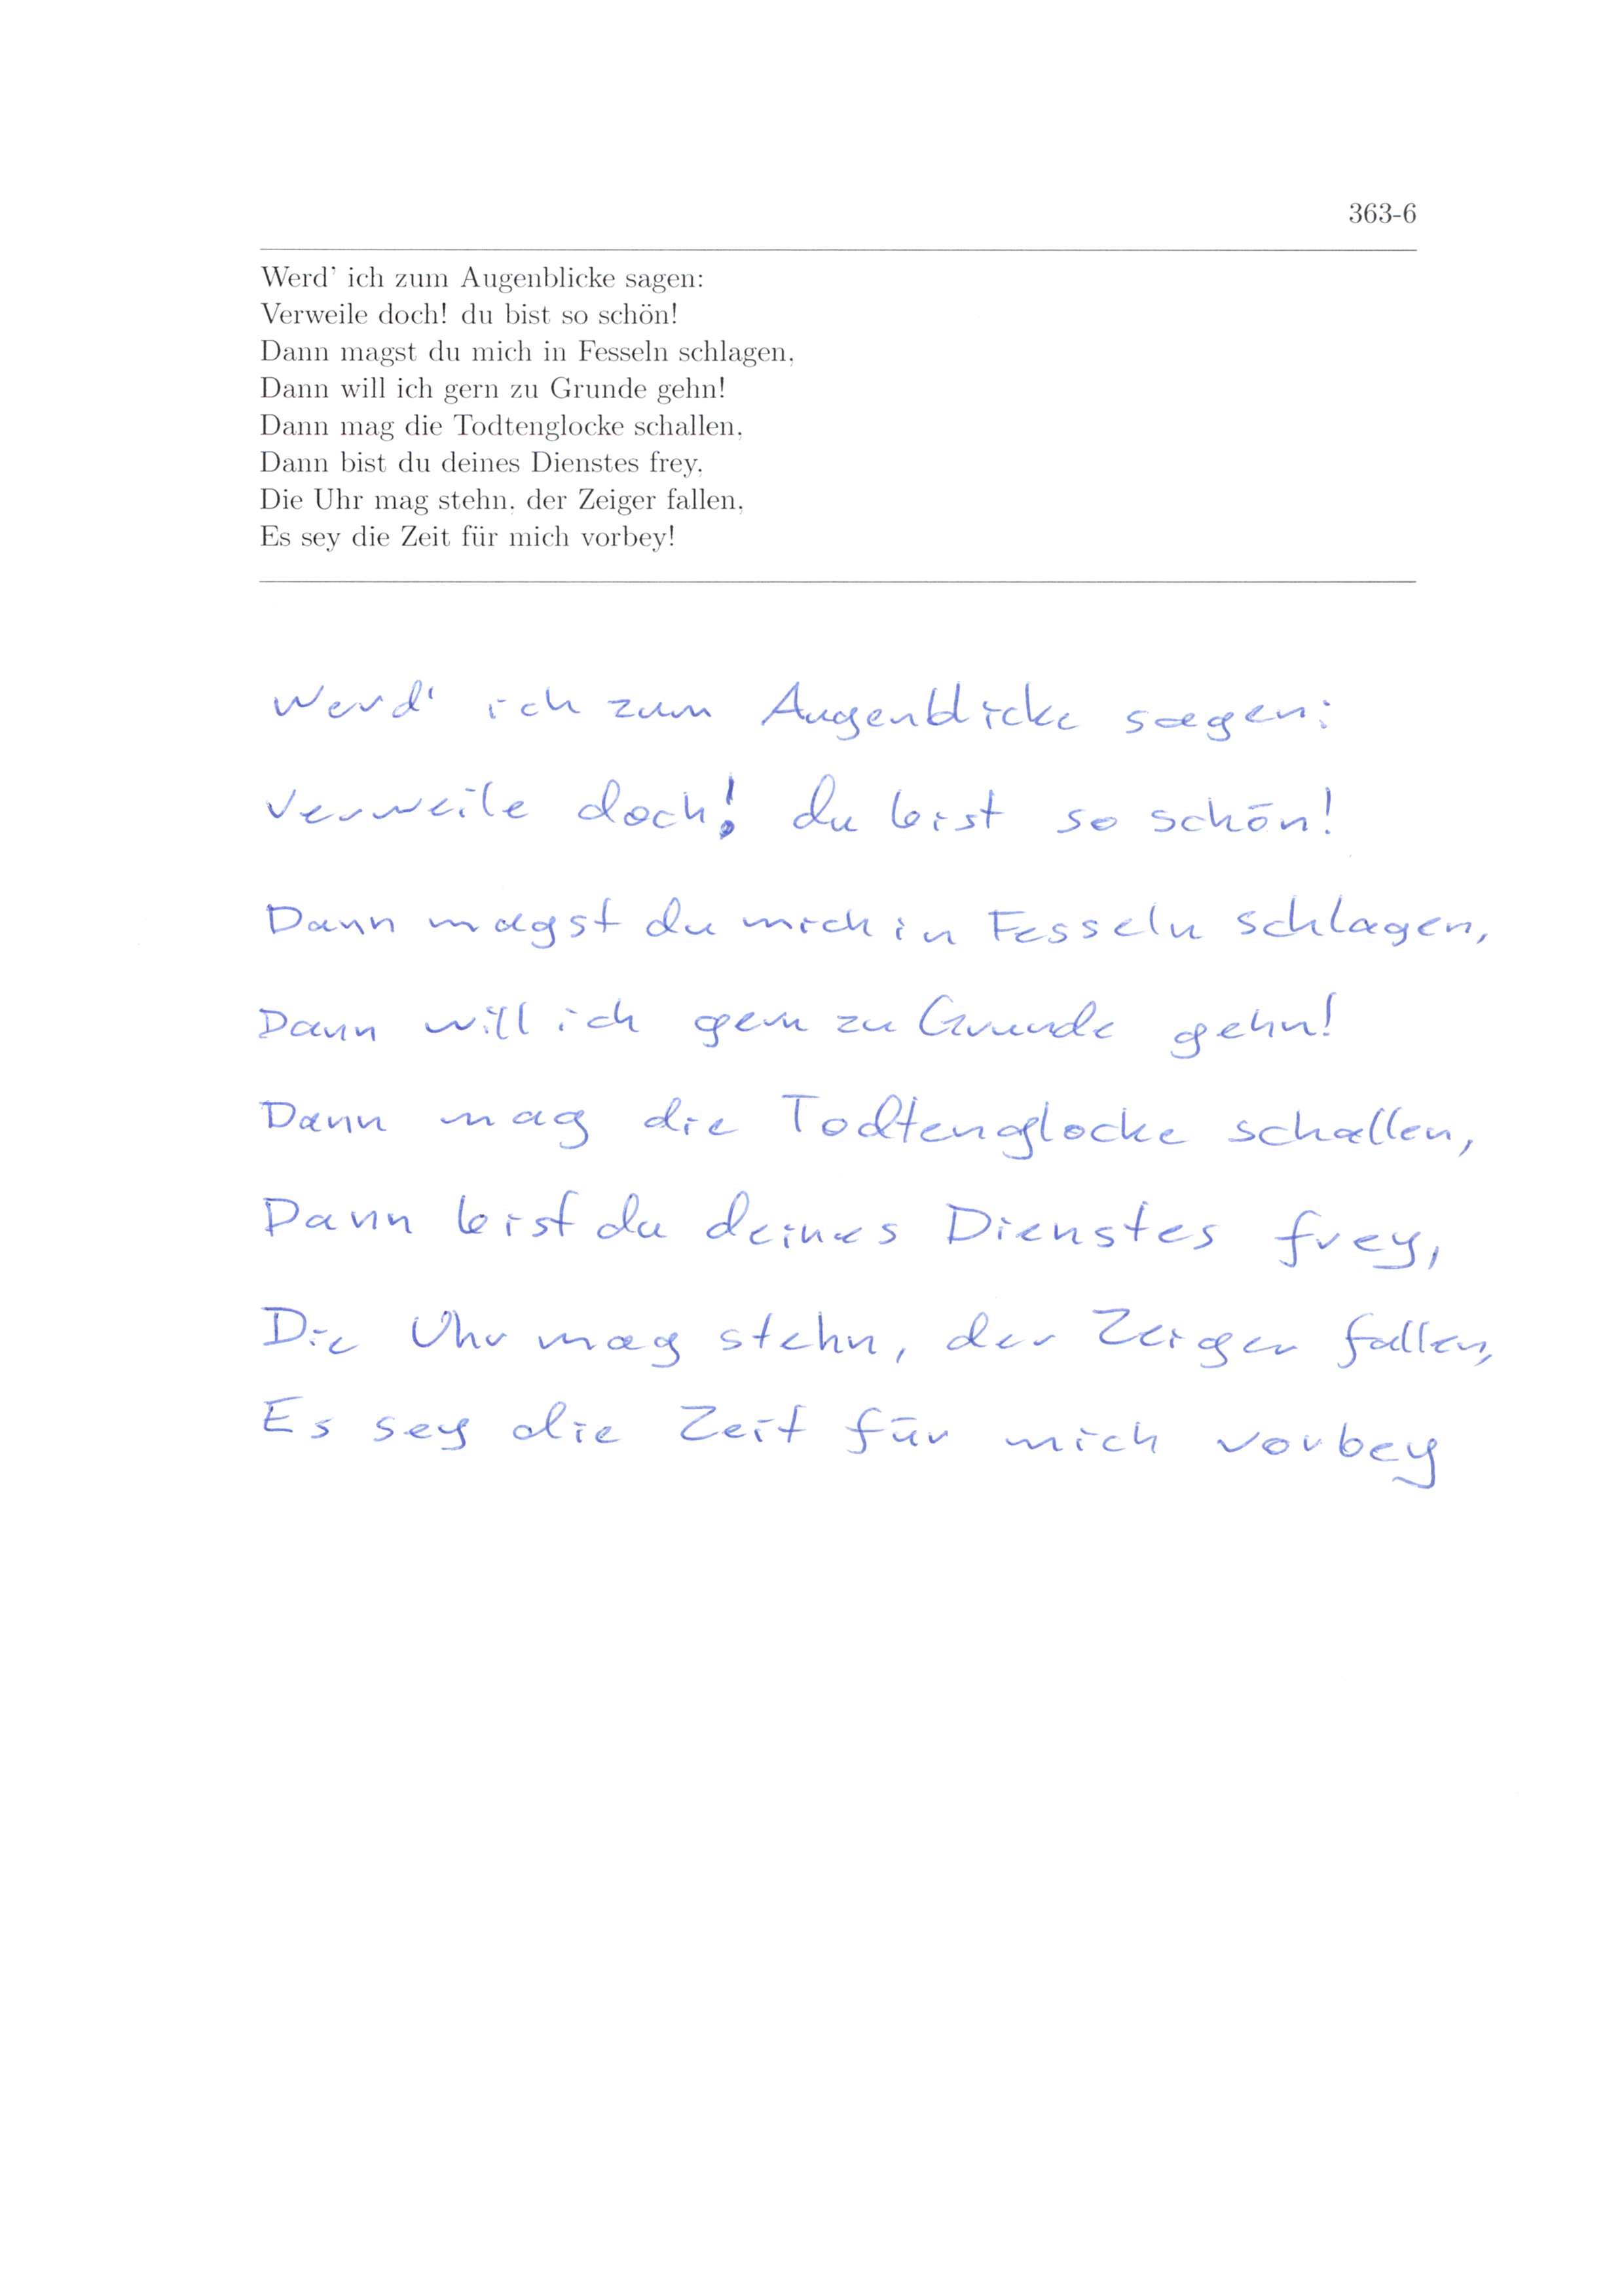 363-6
Werd' ich zum Augenblicke sagen:
Verweile doch! du bist so schön!
Dann magst du mich in Fesseln schlagen,
Dann will ich gern zu Grunde gehn!
Dann mag die Todtenglocke schallen,
Dann bist du deines Dienstes frey,
Die Uhr mag stehn, der Zeiger fallen,
Es sey die Zeit für mich vorbey!
Werd' ich zum Augenblicke sagen:
Verweile doch! du bist so schön!
Dann magst du mich in Fesseln schlagen,
Dann will ich gern zu Grunde gehn!
Dann mag die Todtenglocke schallen,
Dann bist du deines Dienstes frey,
Die Uhr mag stehn, der Zeiger fallen,
Es sey die Zeit für mich vorbey